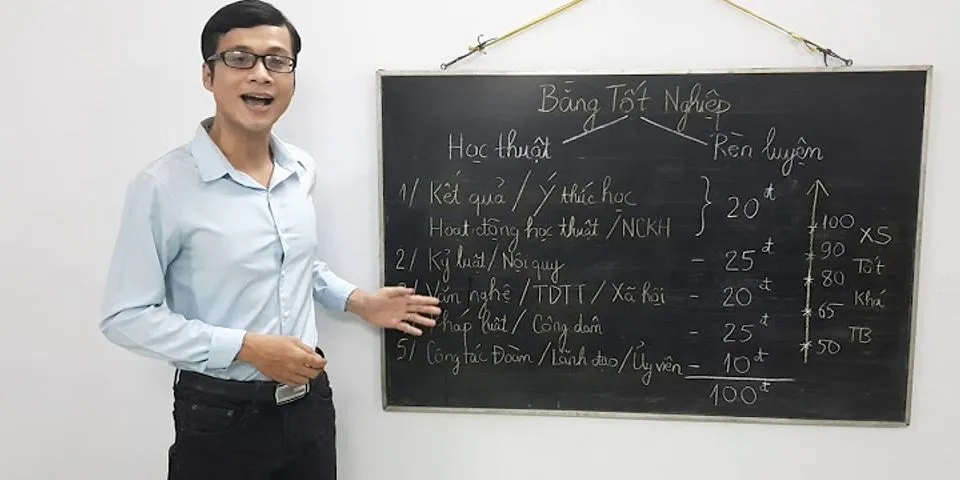 Bằng Tốt Nghiệp
Học thuật
Rèn luyện
1/ Kết quả / Ý thức học } 20đ
Hoạt động học thuật / NCKH
2/ Kỷ luật / Nội quy - 25đ
Văn nghệ / TDTT / Xã hội - 20đ
luật / Công dân - 25đ
5/ Công tác Đoàn / Lãnh đạo / Ủy viên - 10đ
100đ
100
XS
90
Tốt
80
Khá
65
TB
50